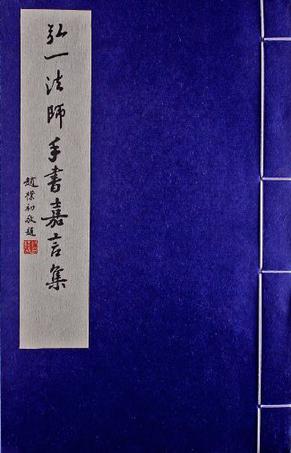 弘一法師手書嘉言集
趙樸初敬題